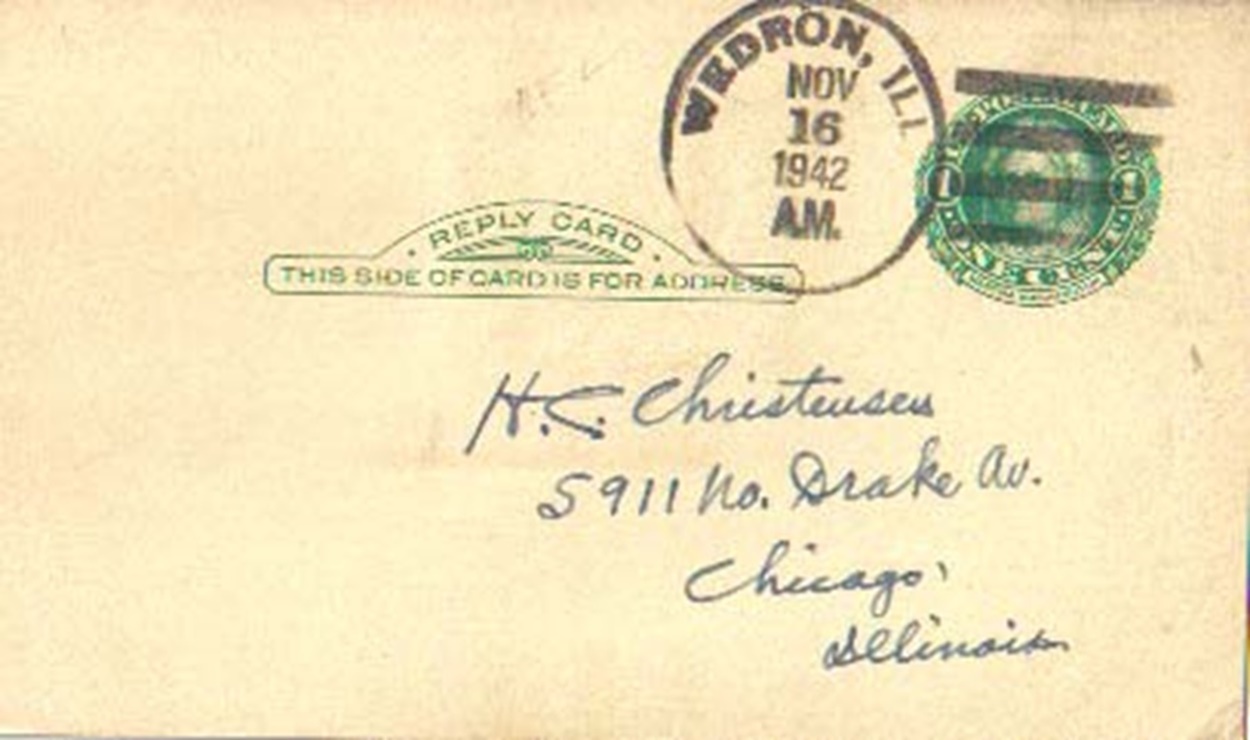 WEDRON, ILL
NOV
16
1942
A.M.
REPLY CARD
THIS SIDE OF CARD IS FOR ADDRESS
1 1
H.C. Christensen
5911 No. Drake Av.
Chicago,
Illinois